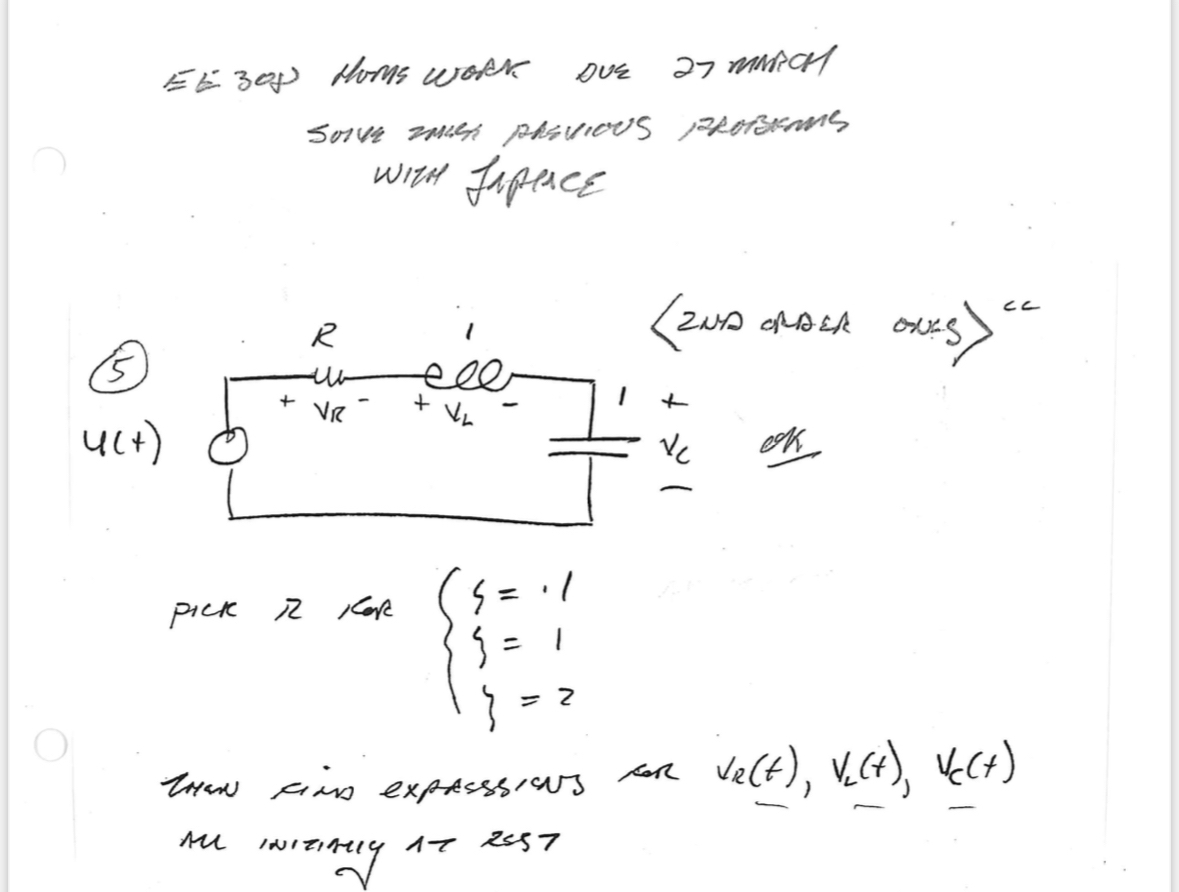 EE 308 HOMEWORK DUE 27 MARCH
SOLVE THESE PREVIOUS PROBLEMS
WITH LAPLACE
(2ND ORDER ONES)
5
R 1
+ VR - + VL -
u(t)
1 +
VC
-
OK
PICK R FOR { ζ = .1
ζ = 1
ζ = 2
THEN FIND EXPRESSIONS FOR VR(t), VL(t), VC(t)
ALL INITIALLY AT REST